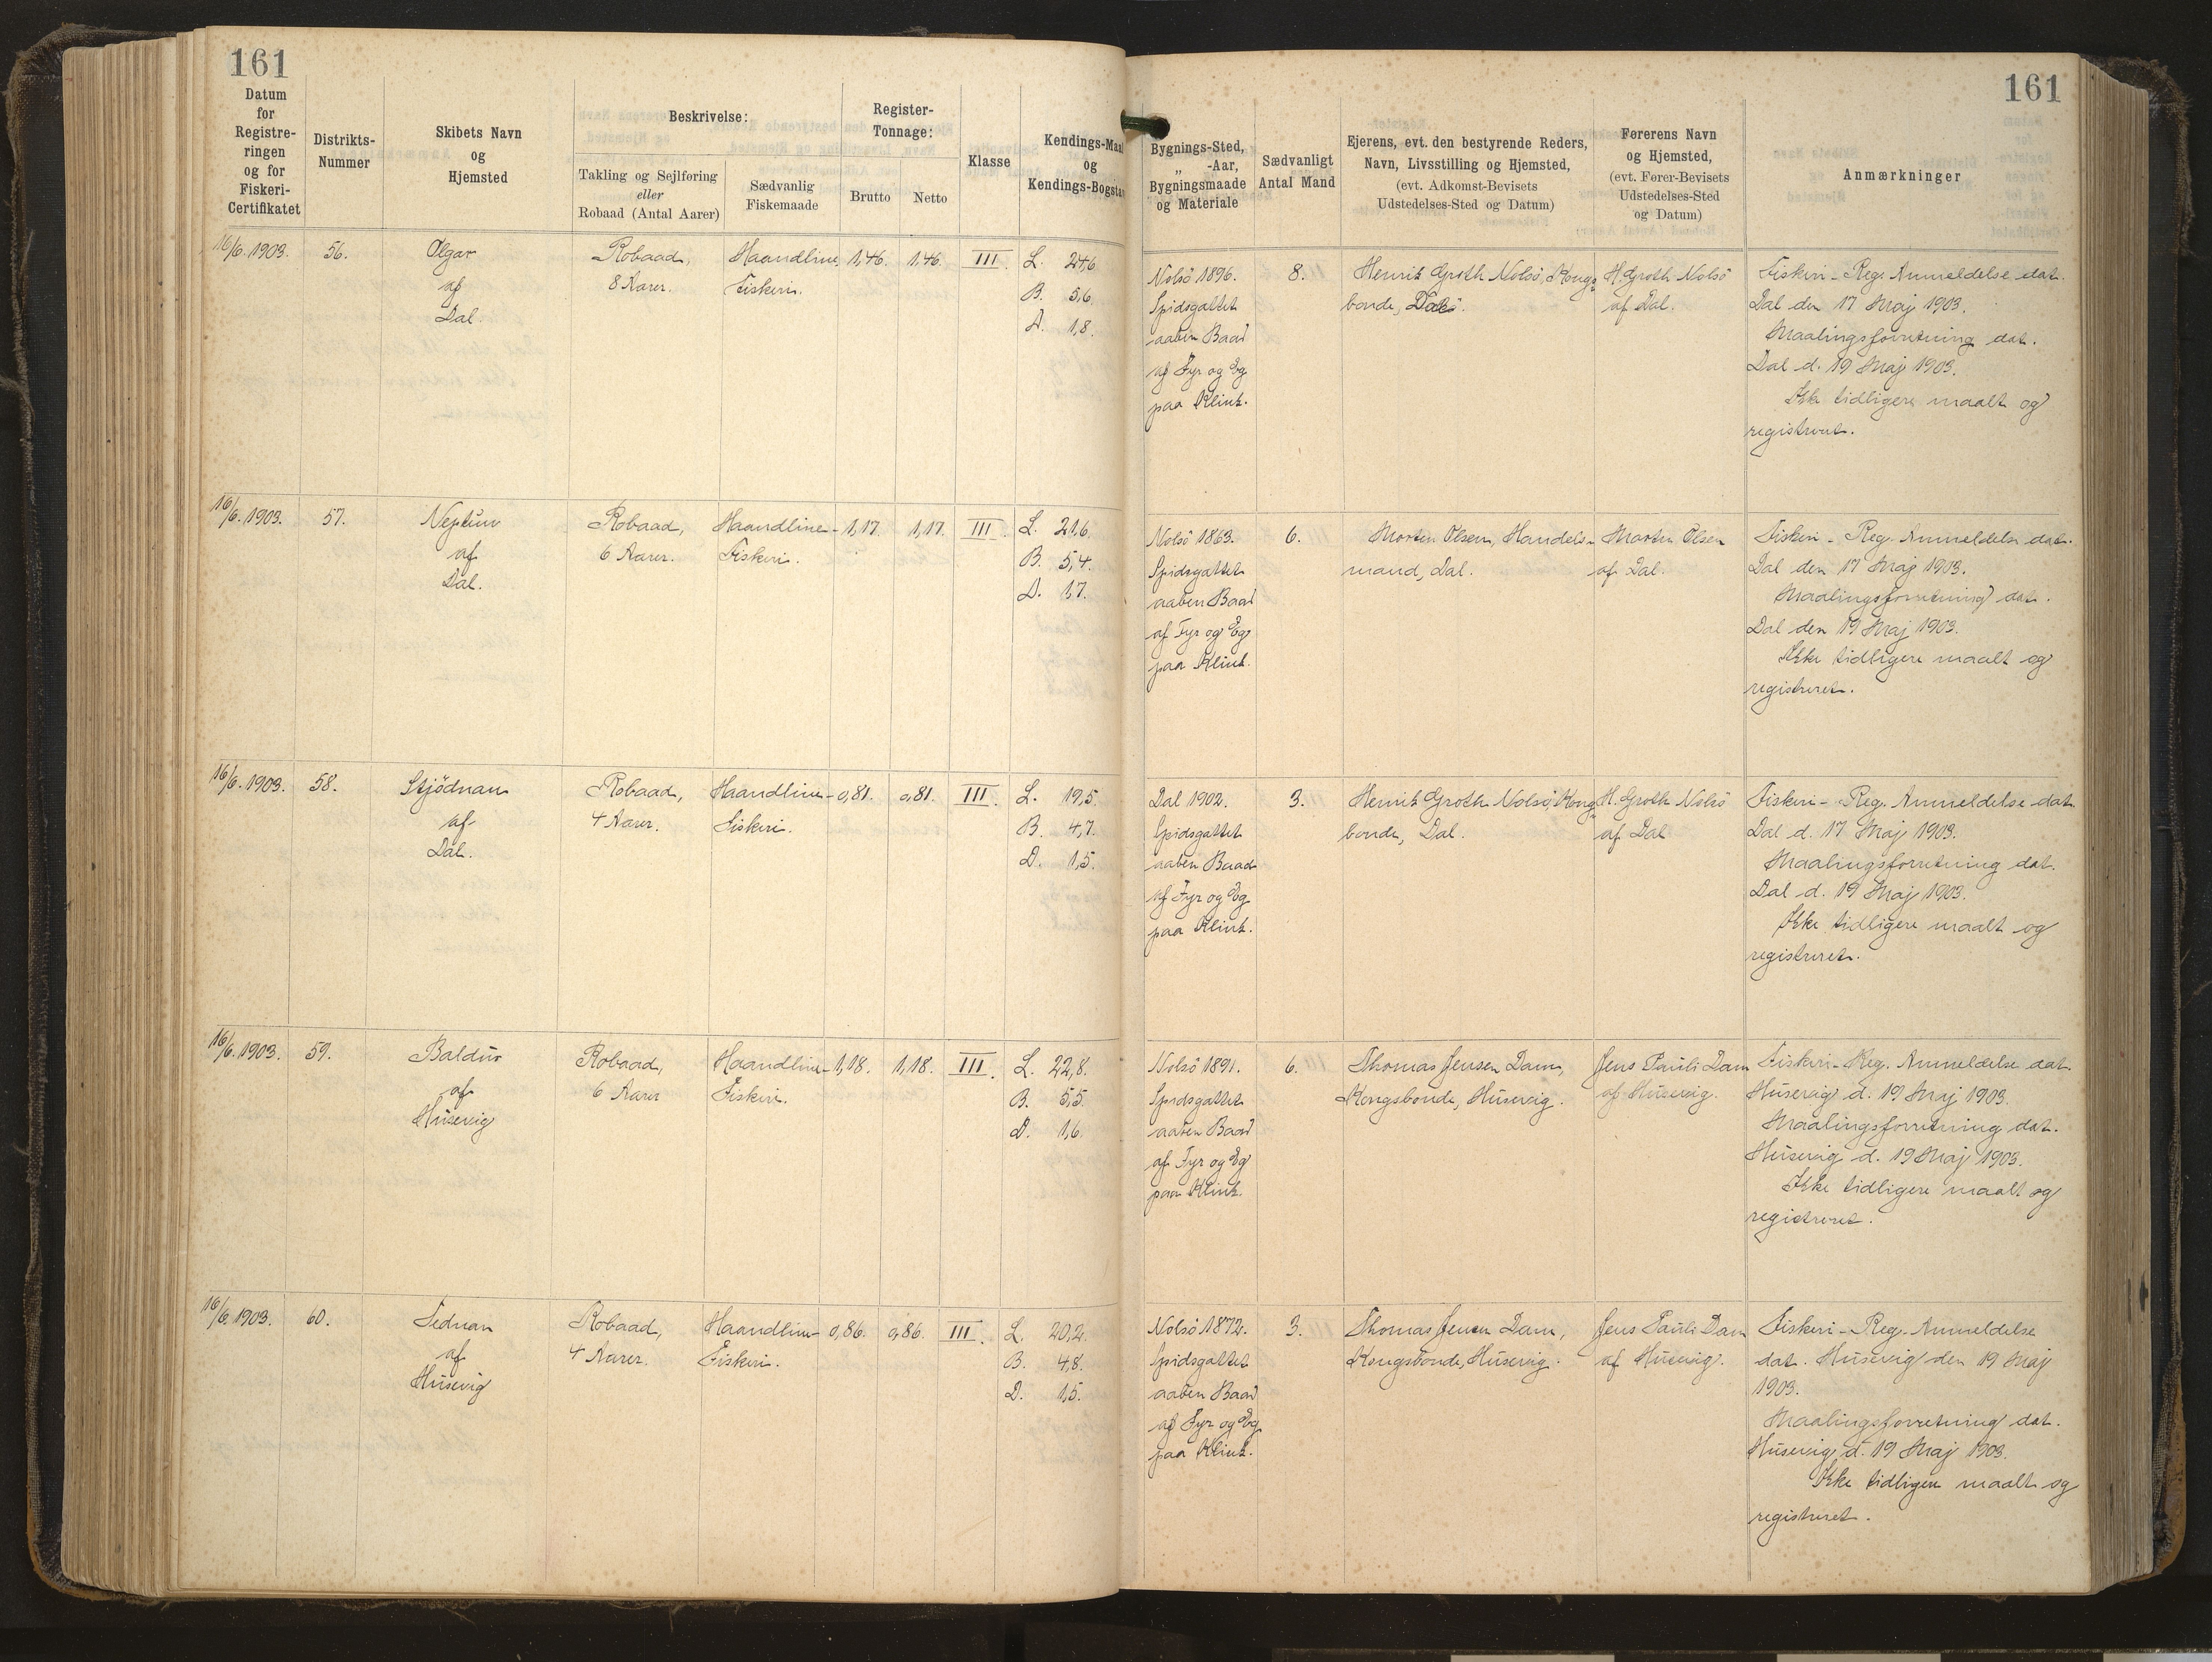 161
161
Datum
for
Registre-
ringen
og for
Fiskeri-
Certifikatet
Distrikts-
Nummer
Skibets Navn
og
Hjemsted
Beskrivelse:
Takling og Sejlføring
eller
Robaad (Antal Aarer)
Sædvanlig
Fiskemaade
Register-
Tonnage:
Brutto
Netto
Klasse
Kendings-Maal
og
Kendings-Bogstav
Bygnings-Sted,
„ -Aar,
Bygningsmaade
og Materiale
Sædvanligt
Antal Mand
Ejerens, evt. den bestyrende Reders,
Navn, Livsstilling og Hjemsted,
(evt. Adkomst-Bevisets
Udstedelses-Sted og Datum)
Førerens Navn
og Hjemsted,
(evt. Fører-Bevisets
Udstedelses-Sted
og Datum)
Anmærkninger
16/6. 1903.
56.
Olgar
af
Dal.
Robaad,
8 Aarer.
Haandline
Fiskeri.
1,46.
1,46.
III.
L. 24,6
B. 5,6.
D. 1,8.
Nolsö 1896.
Spidsgattet
aaben Baad
af Fyr og Eg
paa Klink.
8.
Henrik Groth Nolsö, Kongs-
bonde, Dal.
H. Groth Nolsö
af Dal.
Fiskeri-Reg. Anmeldelse dat.
Dal den 17 Maj 1903.
Maalingsforretning dat.
Dal d. 19 Maj 1903.
Ikke tidligere maalt og
registreret.
16/6. 1903.
57.
Neptun
af
Dal.
Robaad,
6 Aarer.
Haandline-
Fiskeri.
1,17.
1,17.
III.
L. 21,6.
B. 5,4.
D. 1,7.
Nolsö 1863.
Spidsgattet
aaben Baad
af Fyr og Eg
paa Klink.
6.
Morten Olsen, Handels-
mand, Dal.
Morten Olsen
af Dal.
Fiskeri-Reg. Anmeldelse dat.
Dal den 17 Maj 1903.
Maalingsforretning dat.
Dal den 19 Maj 1903.
Ikke tidligere maalt og
registreret.
16/6. 1903.
58.
Stjödnan
af
Dal.
Robaad,
4 Aarer.
Haandline-
Fiskeri.
0,81.
0,81.
III.
L. 19,5.
B. 4,7.
D. 1,5.
Dal 1902.
Spidsgattet
aaben Baad
af Fyr og Eg
paa Klink.
3.
Henrik Groth Nolsö, Kongs-
bonde, Dal.
H. Groth Nolsö
af Dal
Fiskeri-Reg. Anmeldelse dat.
Dal d. 17 Maj 1903.
Maalingsforretning dat.
Dal d. 19 Maj 1903.
Ikke tidligere maalt og
registreret.
16/6. 1903.
59.
Baldur
af
Husevig
Robaad,
6 Aarer
Haandline-
Fiskeri.
1,18.
1,18.
III.
L. 22,8.
B. 5,5.
D. 1,6.
Nolsö 1891.
Spidsgattet
aaben Baad
af Fyr og Eg
paa Klink.
6.
Thomas Jensen Dam,
Kongsbonde, Husevig.
Jens Pauli Dam
af Husevig.
Fiskeri-Reg. Anmeldelse dat.
Husevig d. 19 Maj 1903.
Maalingsforretning dat.
Husevig d. 19 Maj 1903.
Ikke tidligere maalt og
registreret.
16/6. 1903.
60.
Tednan
af
Husevig
Robaad,
4 Aarer.
Haandline-
Fiskeri.
0,86.
0,86.
III.
L. 20,2.
B. 4,8.
D. 1,5.
Nolsö 1872.
Spidsgattet
aaben Baad
af Fyr og Eg
paa Klink.
3.
Thomas Jensen Dam,
Kongsbonde, Husevig.
Jens Pauli Dam
af Husevig.
Fiskeri-Reg. Anmeldelse
dat. Husevig den 19 Maj
1903.
Maalingsforretning dat.
Husevig d. 19 Maj 1903.
Ikke tidligere maalt og
registreret.